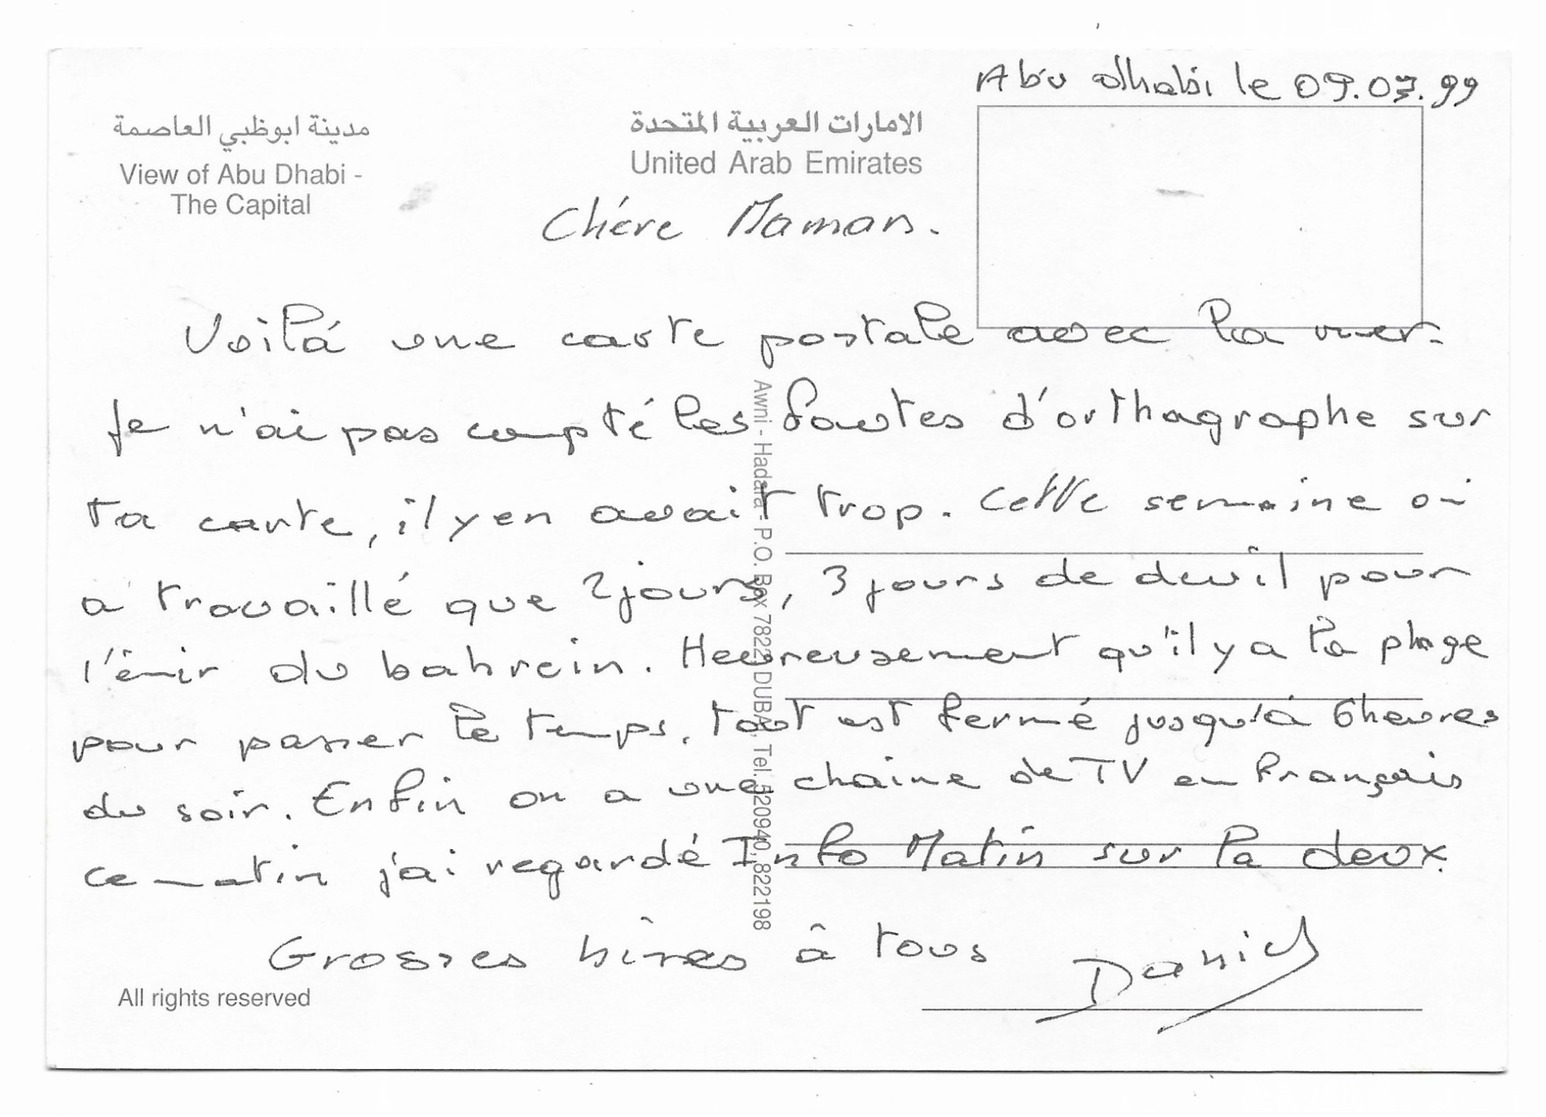 Abu dhabi le 09.03.99
مدينة ابوظبي العاصمة
View of Abu Dhabi -
The Capital
الامارات العربية المتحدة
United Arab Emirates
Chére Maman.
Voilá une carte postale avec la mer.
Je n'ai pas compté les fautes d'orthagraphe sur
ta carte, il y en avait trop. Cette semaine on
a travaillé que 2 jours, 3 jours de deuil pour
l'émir du bahrein. Heureusement qu'il y a la plage
pour passer le temps, tout est fermé jusqu'à 6 heures
du soir. Enfin on a une chaine de TV en Français
ce matin j'ai regardé Info Matin sur la deux.
Grosses bises à tous
Daniel
Awni - Hadara - P.O. Box 7822 DUBAI Tel. 520940, 822198
All rights reserved